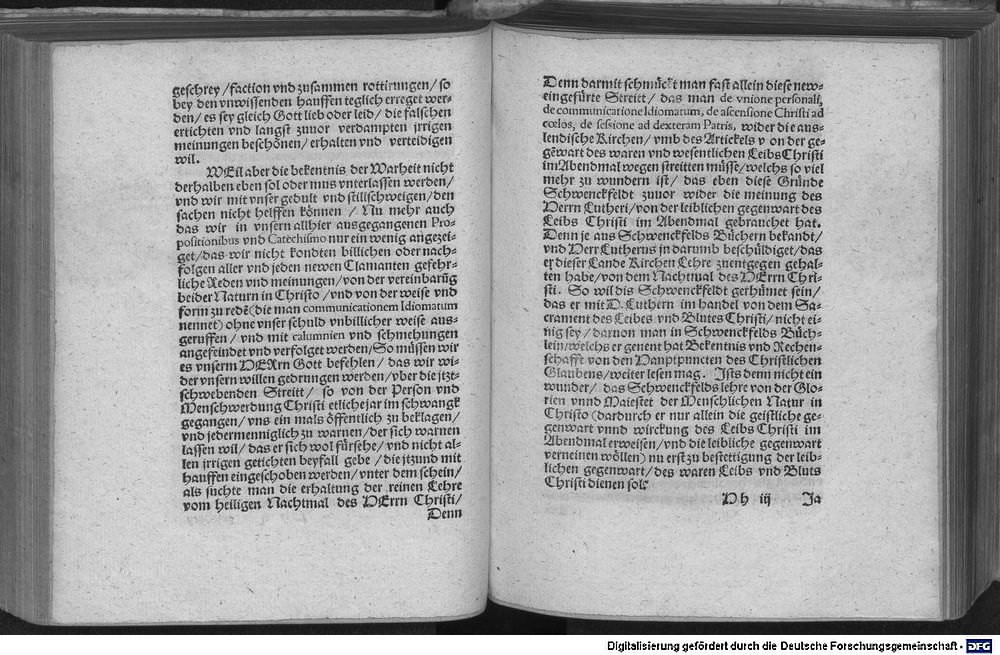 geschrey /faction vnd zusammen rottirungen/ so
bey den vnwissenden hauffen teglich erreget wer-
den/ es sey gleich Gott lieb oder leid/ die falschen
ertichten vnd langst zuuor verdampten jrrigen
meinungen beschönen/ erhalten vnd verteidigen
wil.
WEil aber die bekentnis der Warheit nicht
derhalben eben sol oder mus vnterlassen werden/
vnd wir mit vnser gedult vnd stillschweigen/ den
sachen nicht helffen können / Nu mehr auch
das wir in vnsern allhier ausgegangenen Pro-
positionibus vnd Catechismo nur ein wenig angezei-
get/ das wir nicht kondten billichen oder nach-
folgen aller vnd jeden newen Clamanten gefehr-
liche Reden vnd meinungen/ von der vereinbarūg
beider Naturn in Christo / vnd von der weise vnd
form zu redē (die man communicationem Idiomatum
nennet) ohne vnser schuld vnbillicher weise aus-
geruffen / vnd mit calumnien vnd schmehungen
angefeindet vnd verfolget werden/ So müssen wir
es vnserm HERrn Gott befehlen/ das wir wi-
der vnsern willen gedrungen werden/ vber die jtzt-
schwebenden Streitt/ so von der Person vnd
Menschwerdung Christi etliche jar im schwangk
gegangen/ vns ein mals öffentlich zu beklagen/
vnd jedermenniglich zu warnen/ der sich warnen
lassen wil/ das er sich wol fürsehe/ vnd nicht al-
len jrrigen getichten beyfall gebe / die jtzund mit
hauffen eingeschoben werden/ vnter dem schein/
als suchte man die erhaltung der reinen Lehre
vom heiligen Nachtmal des HERrn Christi/
Denn
Denn darmit schmückt man fast allein diese new-
eingefürte Streitt/ das man de vnione personali,
de communicatione Idiomatum, de ascensione Christi ad
cœlos, de sessione ad dexteram Patris, wider die aus-
lendische Kirchen/ vmb des Artickels von der ge-
gēwart des waren vnd wesentlichen Leibs Christi
im Abendmal wegen streitten müsse/ welchs so viel
mehr zu wundern ist/ das eben diese Gründe
Schwenckfeldt zuuor wider die meinung des
Herrn Lutheri/ von der leiblichen gegenwart des
Leibs Christi im Abendmal gebrauchet hat.
Denn je aus Schwenckfelds Büchern bekandt/
vnd Herr Lutherus jn darumb beschüldiget/ das
er dieser Lande Kirchen Lehre zuentgegen gehal-
ten habe/ von den Nachtmal des HErrn Chri-
sti. So wil dis Schwenckfeldt gerhümet sein/
das er mit D. Luthern im handel von dem Sa-
crament des Leibes vnd Blutes Christi/ nicht ei-
nig sey / daruon man in Schwenckfelds Büch-
lein/ welchs er genent hat Bekentnis vnd Rechen-
schafft von den Hauptpuncten des Christlichen
Glaubens/ weiter lesen mag. Ists denn nicht ein
wunder/ das Schwenckfelds lehre von der Glo-
rien vnnd Maiestet der Menschlichen Natur in
Christo (dardurch er nur allein die geistliche ge-
genwart vnnd wirckung des Leibs Christi im
Abendmal erweisen/ vnd die leibliche gegenwart
verneinen wöllen) nu erst zu bestettigung der leib-
lichen gegenwart/ des waren Leibs vnd Bluts
Christi dienen sol?
Hh iij Ja
Digitalisierung gefördert durch die Deutsche Forschungsgemeinschaft - DFG